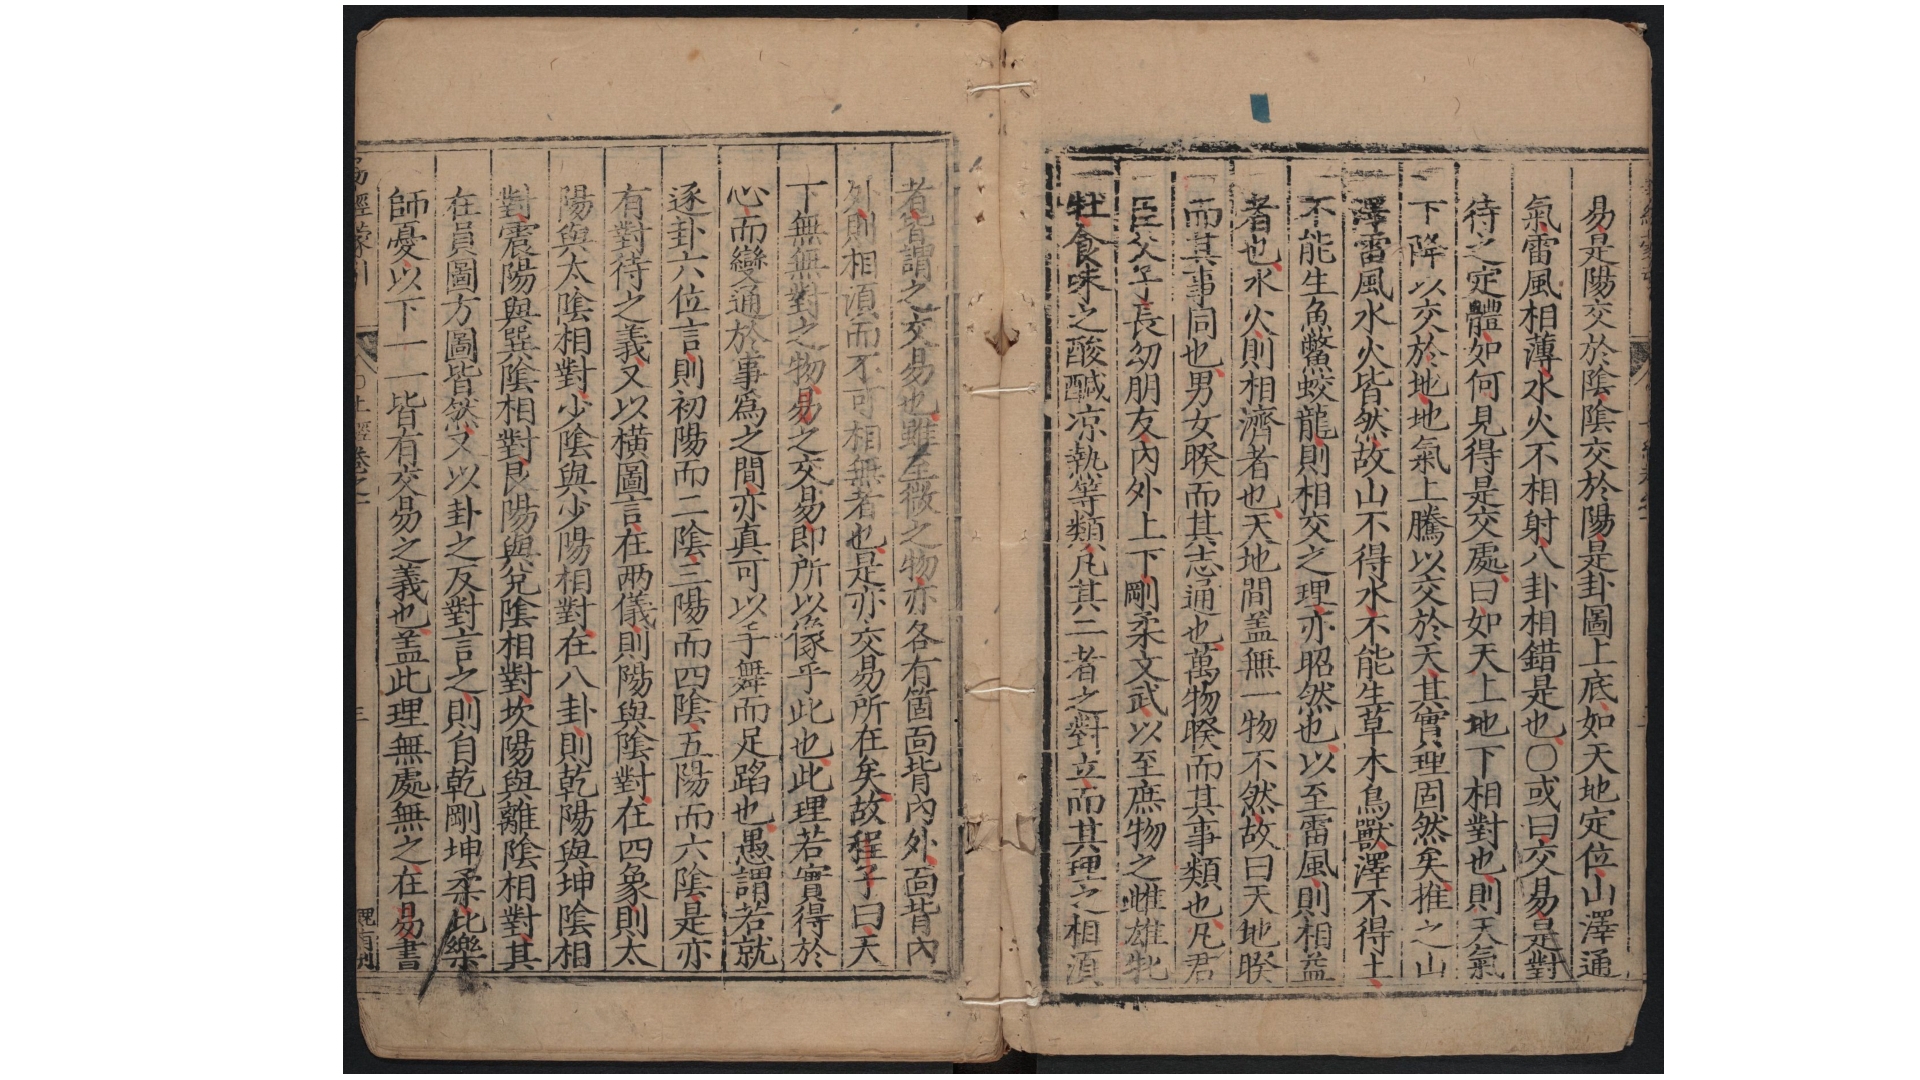 易是陽交於陰陰交於陽是卦圖上底如天地定位山澤通
氣雷風相薄水火不相射八卦相錯是也〇或曰交易是對
待之定體如何見得是交處曰如天上地下相對也則天氣
下降以交於地地氣上騰以交於天其實理固然矣推之山
澤雷風水火皆然故山不得水不能生草木鳥獸澤不得土
不能生魚鱉蛟龍則相交之理亦昭然也以至雷風則相益
者也水火則相濟者也天地間盖無一物不然故曰天地睽
而其事同也男女睽而其志通也萬物睽而其事類也凡君
臣父子長幼朋友內外上下剛柔文武以至庶物之雌雄牝
牡食味之酸鹹凉熱等類凡其二者之對立而其理之相湏
者皆謂之交易也雖至微之物亦各有箇面背內外面背內
外則相湏而不可相無者也是亦交易所在矣故程子曰天
下無無對之物易之交易即所以像乎此也此理若實得於
心而變通於事爲之間亦真可以手舞而足蹈也愚謂若就
逐卦六位言則初陽而二陰三陽而四陰五陽而六陰是亦
有對待之義又以橫圖言在两儀則陽與陰對在四象則太
陽與太陰相對少陰與少陽相對在八卦則乾陽與坤陰相
對震陽與巽陰相對艮陽與兌陰相對坎陽與離陰相對其
在員圖方圖皆然又以卦之反對言之則自乾剛坤柔比樂
師憂以下一一皆有交易之義也盖此理無處無之在易書
易經蒙引
上經卷之一
三